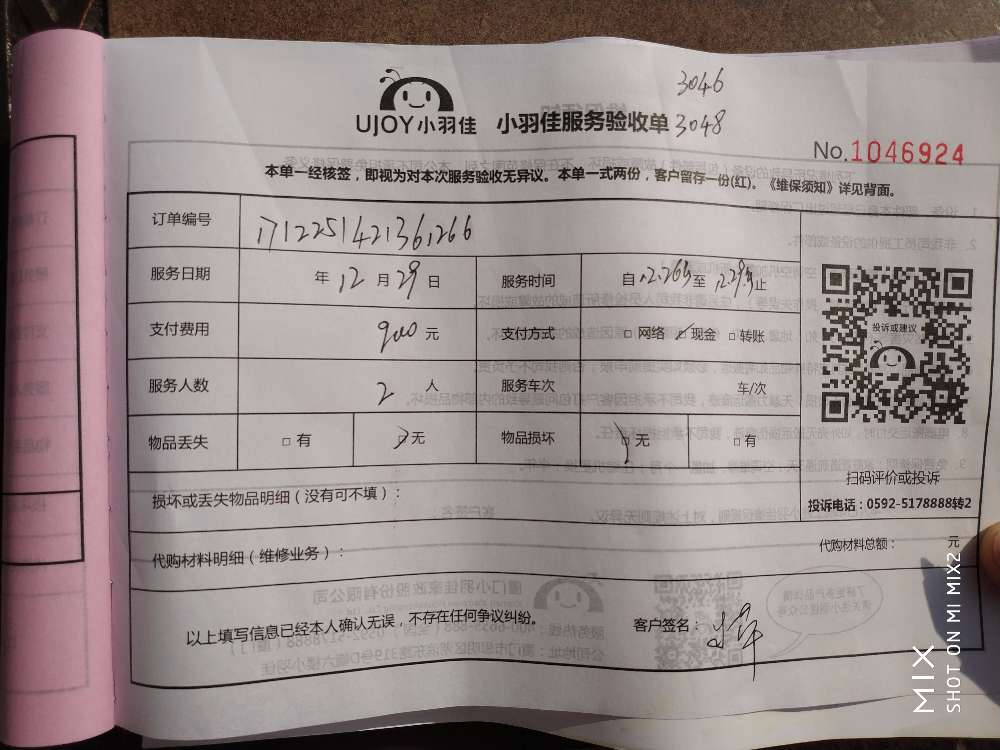 3046
UJOY小羽佳 小羽佳服务验收单 3048
No.1046924
本单一经核签，即视为对本次服务验收无异议。本单一式两份，客户留存一份(红)。《维保须知》详见背面。
订单编号 171225142136266
服务日期 年 12 月 29 日 服务时间 自 至 止
支付费用 900 元 支付方式 □ 网络 ☑ 现金 □ 转账
投诉或建议
服务人数 2 人 服务车次 车/次
物品丢失 □ 有 ☑ 无 物品损坏 ☑ 无 □ 有
扫码评价或投诉
投诉电话：0592-5178888转2
损坏或丢失物品明细（没有可不填）：
代购材料明细（维修业务）： 代购材料总额： 元
以上填写信息已经本人确认无误，不存在任何争议纠纷。 客户签名：
MIX
SHOT ON MI MIX2